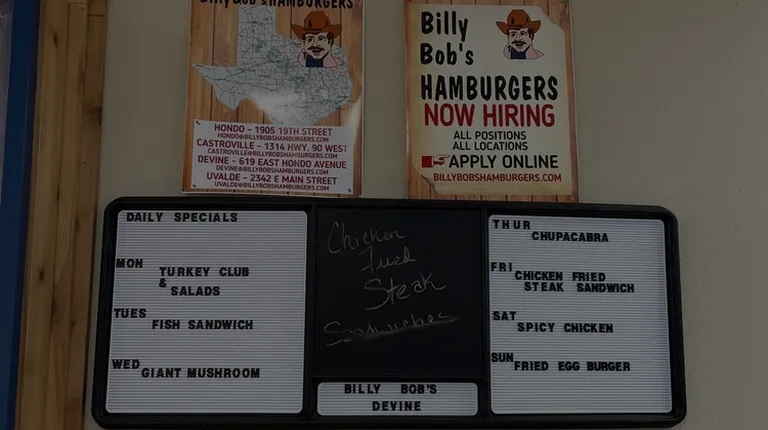 Billy Bob's HAMBURGERS
HONDO - 1905 19TH STREET
HONDO@BILLYBOBSHAMBURGERS.COM
CASTROVILLE - 1314 HWY. 90 WEST
CASTROVILLE@BILLYBOBSHAMBURGERS.COM
DEVINE - 619 EAST HONDO AVENUE
DEVINE@BILLYBOBSHAMBURGERS.COM
UVALDE - 2342 E MAIN STREET
UVALDE@BILLYBOBSHAMBURGERS.COM
Billy
Bob's
HAMBURGERS
NOW HIRING
ALL POSITIONS
ALL LOCATIONS
APPLY ONLINE
BILLYBOBSHAMBURGERS.COM
DAILY SPECIALS
MON
TURKEY CLUB
&
SALADS
TUES
FISH SANDWICH
WED
GIANT MUSHROOM
Chicken
Fried
Steak
Sandwiches
BILLY BOB'S
DEVINE
THUR
CHUPACABRA
FRI
CHICKEN FRIED
STEAK SANDWICH
SAT
SPICY CHICKEN
SUN
FRIED EGG BURGER